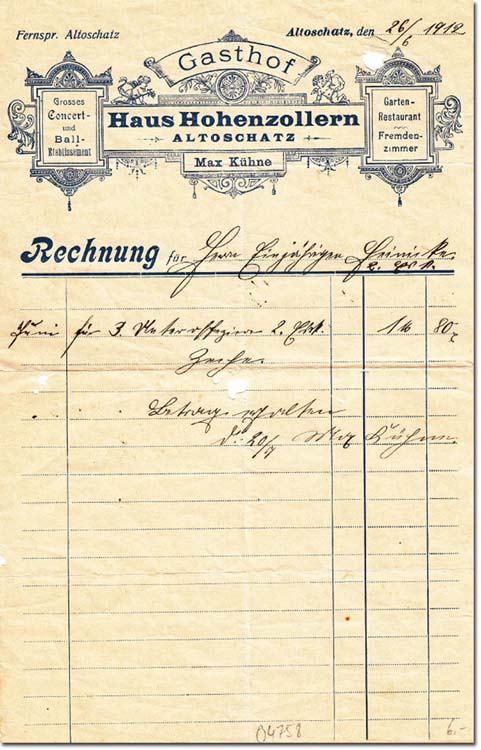 Fernspr. Altoschatz
Altoschatz, den 26/6 1912
Gasthof
Haus Hohenzollern
ALTOSCHATZ
Max Kühne
Grosses
Concert-
und
Ball-
Etablissement
Garten-
Restaurant
Fremden-
zimmer
Rechnung für Herrn Einjährigen Heinicke
Juni für 3 Unteroffiziere 2. Esk. 1 M 80
Zeche.
Betrag erhalten
d. 20/7 Max Kühne.
04758
6.-